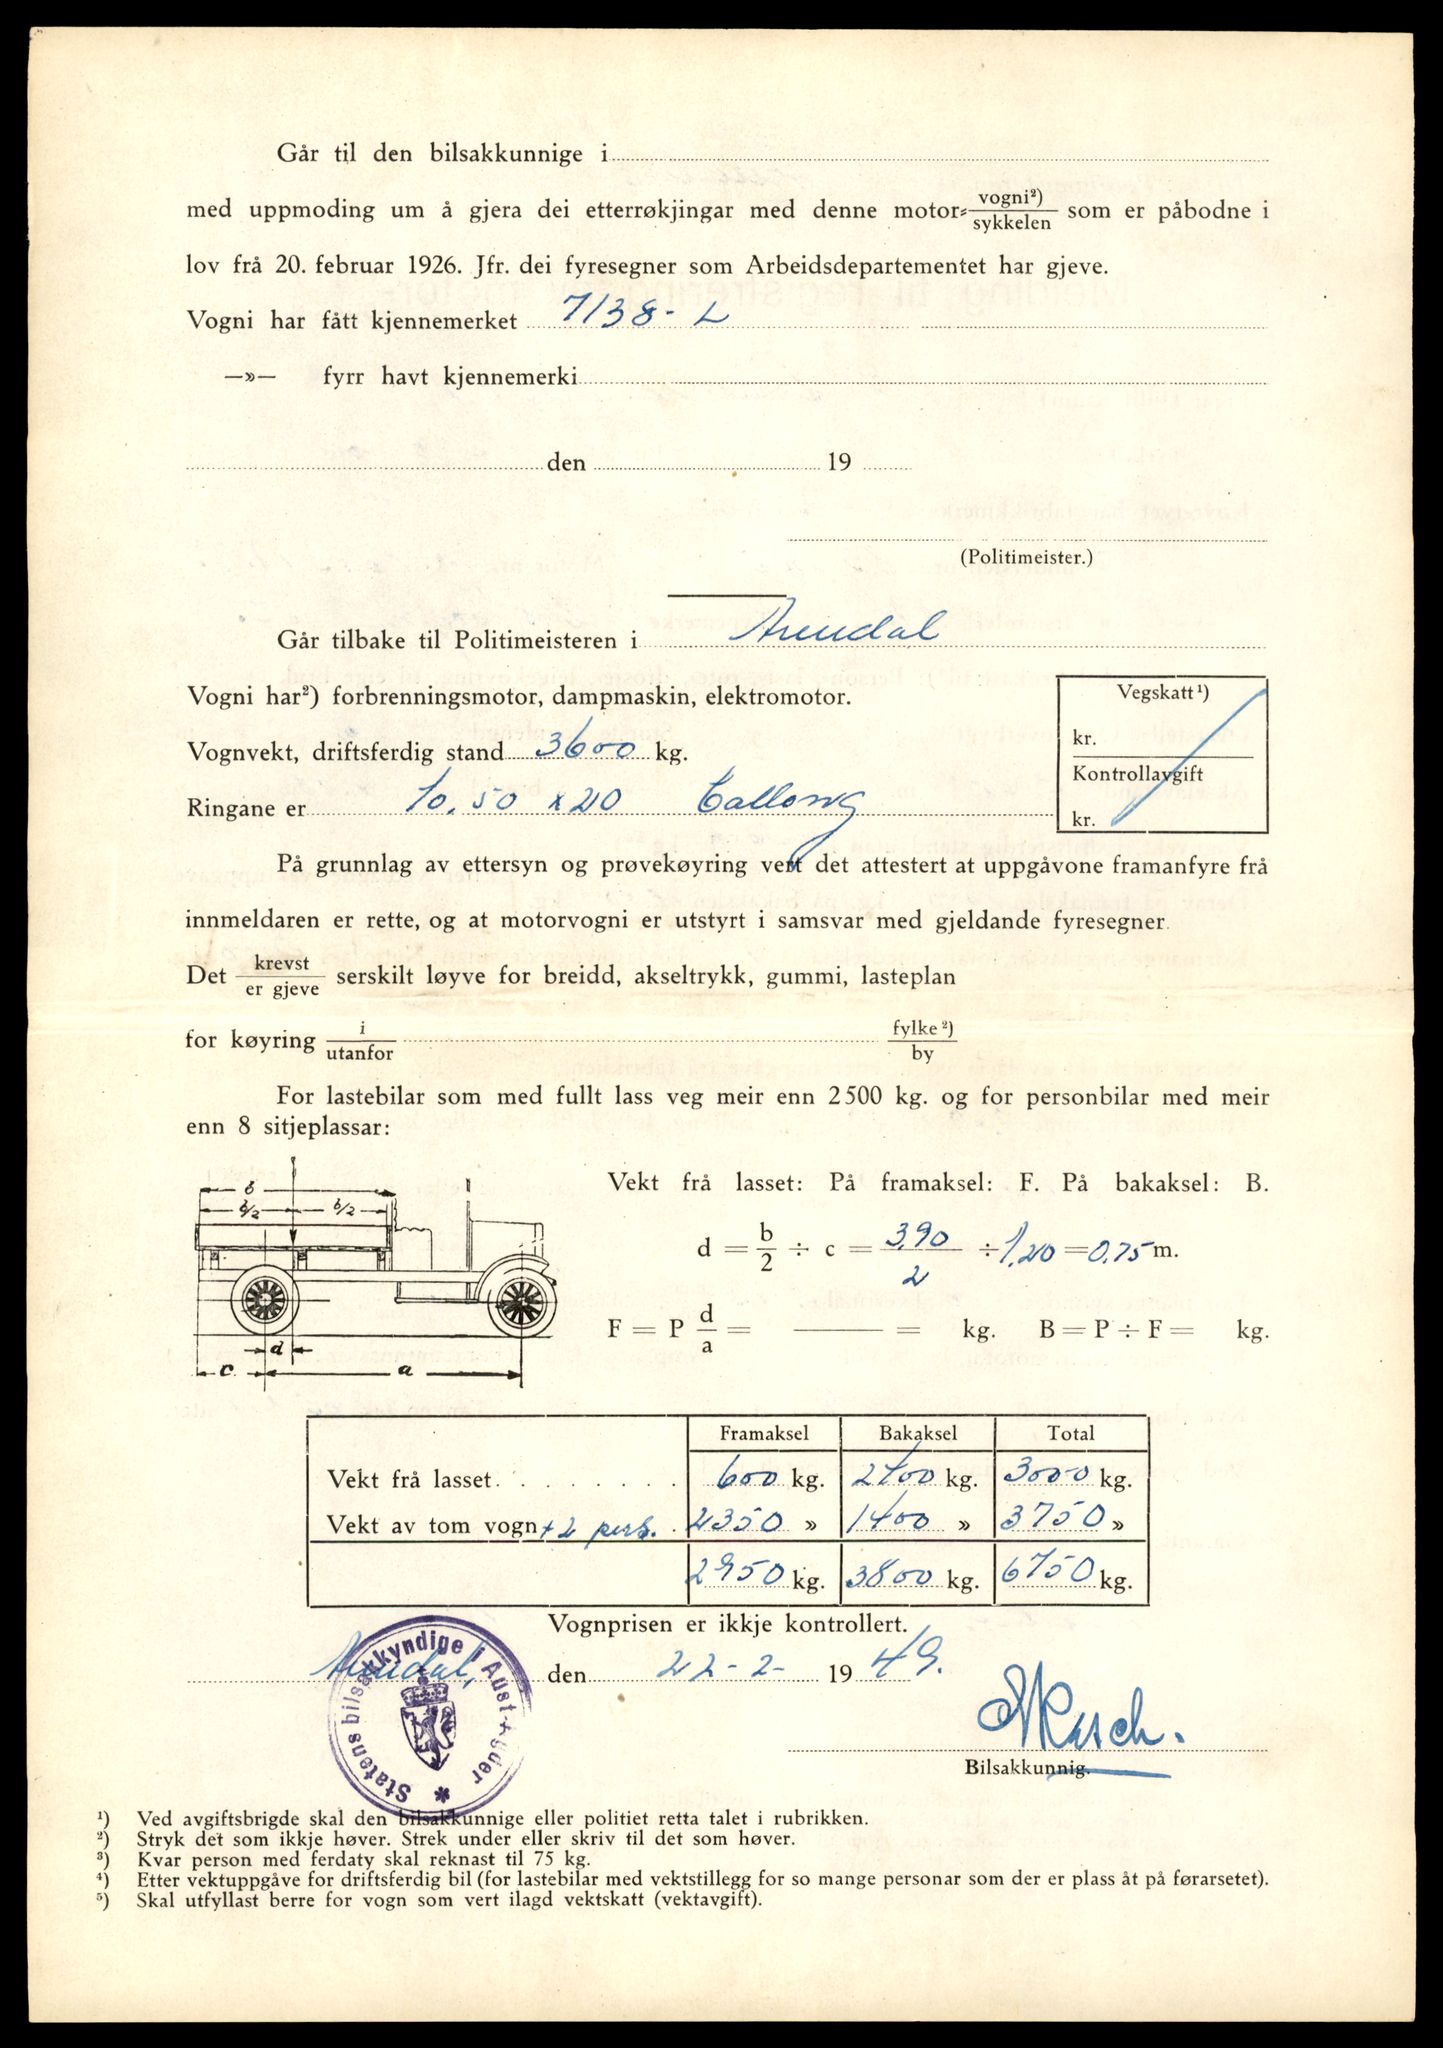 Går til den bilsakkunnige i
med uppmoding um å gjera dei etterrøkjingar med denne motor- vogni²) / sykkelen som er påbodne i
lov frå 20. februar 1926. Jfr. dei fyresegner som Arbeidsdepartementet har gjeve.
Vogni har fått kjennemerket 7138-L
—»— fyrr havt kjennemerki
den 19
(Politimeister.)
Går tilbake til Politimeisteren i Arendal
Vogni har²) forbrenningsmotor, dampmaskin, elektromotor.
Vognvekt, driftsferdig stand 3600 kg.
Ringane er 10.50 x 20
Vegskatt¹)
kr.
Kontrollavgift
kr.
På grunnlag av ettersyn og prøvekøyring vert det attestert at uppgåvone framanfyre frå
innmeldaren er rette, og at motorvogni er utstyrt i samsvar med gjeldande fyresegner.
Det krevst / er gjeve serskilt løyve for breidd, akseltrykk, gummi, lasteplan
for køyring i / utanfor fylke²) / by
For lastebilar som med fullt lass veg meir enn 2500 kg. og for personbilar med meir
enn 8 sitjeplassar:
b
b/2 b/2
d
c a
Vekt frå lasset: På framaksel: F. På bakaksel: B.
d = b/2 ÷ c = 3,90/2 ÷ 1,20 = 0,75 m.
F = P d/a = —— = kg. B = P ÷ F = kg.
Framaksel Bakaksel Total
Vekt frå lasset. . . . . . . . 600 kg. 2400 kg. 3000 kg.
Vekt av tom vogn + 2 pers. . 2350 » 1400 » 3750 »
2950 kg. 3800 kg. 6750 kg.
Vognprisen er ikkje kontrollert.
Arendal, den 22-2- 1949.
Statens bilsakkyndige i Aust-Agder *
Bilsakkunnig.
¹) Ved avgiftsbrigde skal den bilsakkunnige eller politiet retta talet i rubrikken.
²) Stryk det som ikkje høver. Strek under eller skriv til det som høver.
³) Kvar person med ferdaty skal reknast til 75 kg.
⁴) Etter vektuppgåve for driftsferdig bil (for lastebilar med vektstillegg for so mange personar som der er plass åt på førarsetet).
⁵) Skal utfyllast berre for vogn som vert ilagd vektskatt (vektavgift).